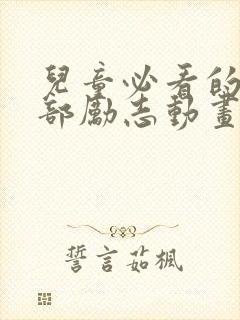 兒童必看的
部勵志動畫
誓言茹楓